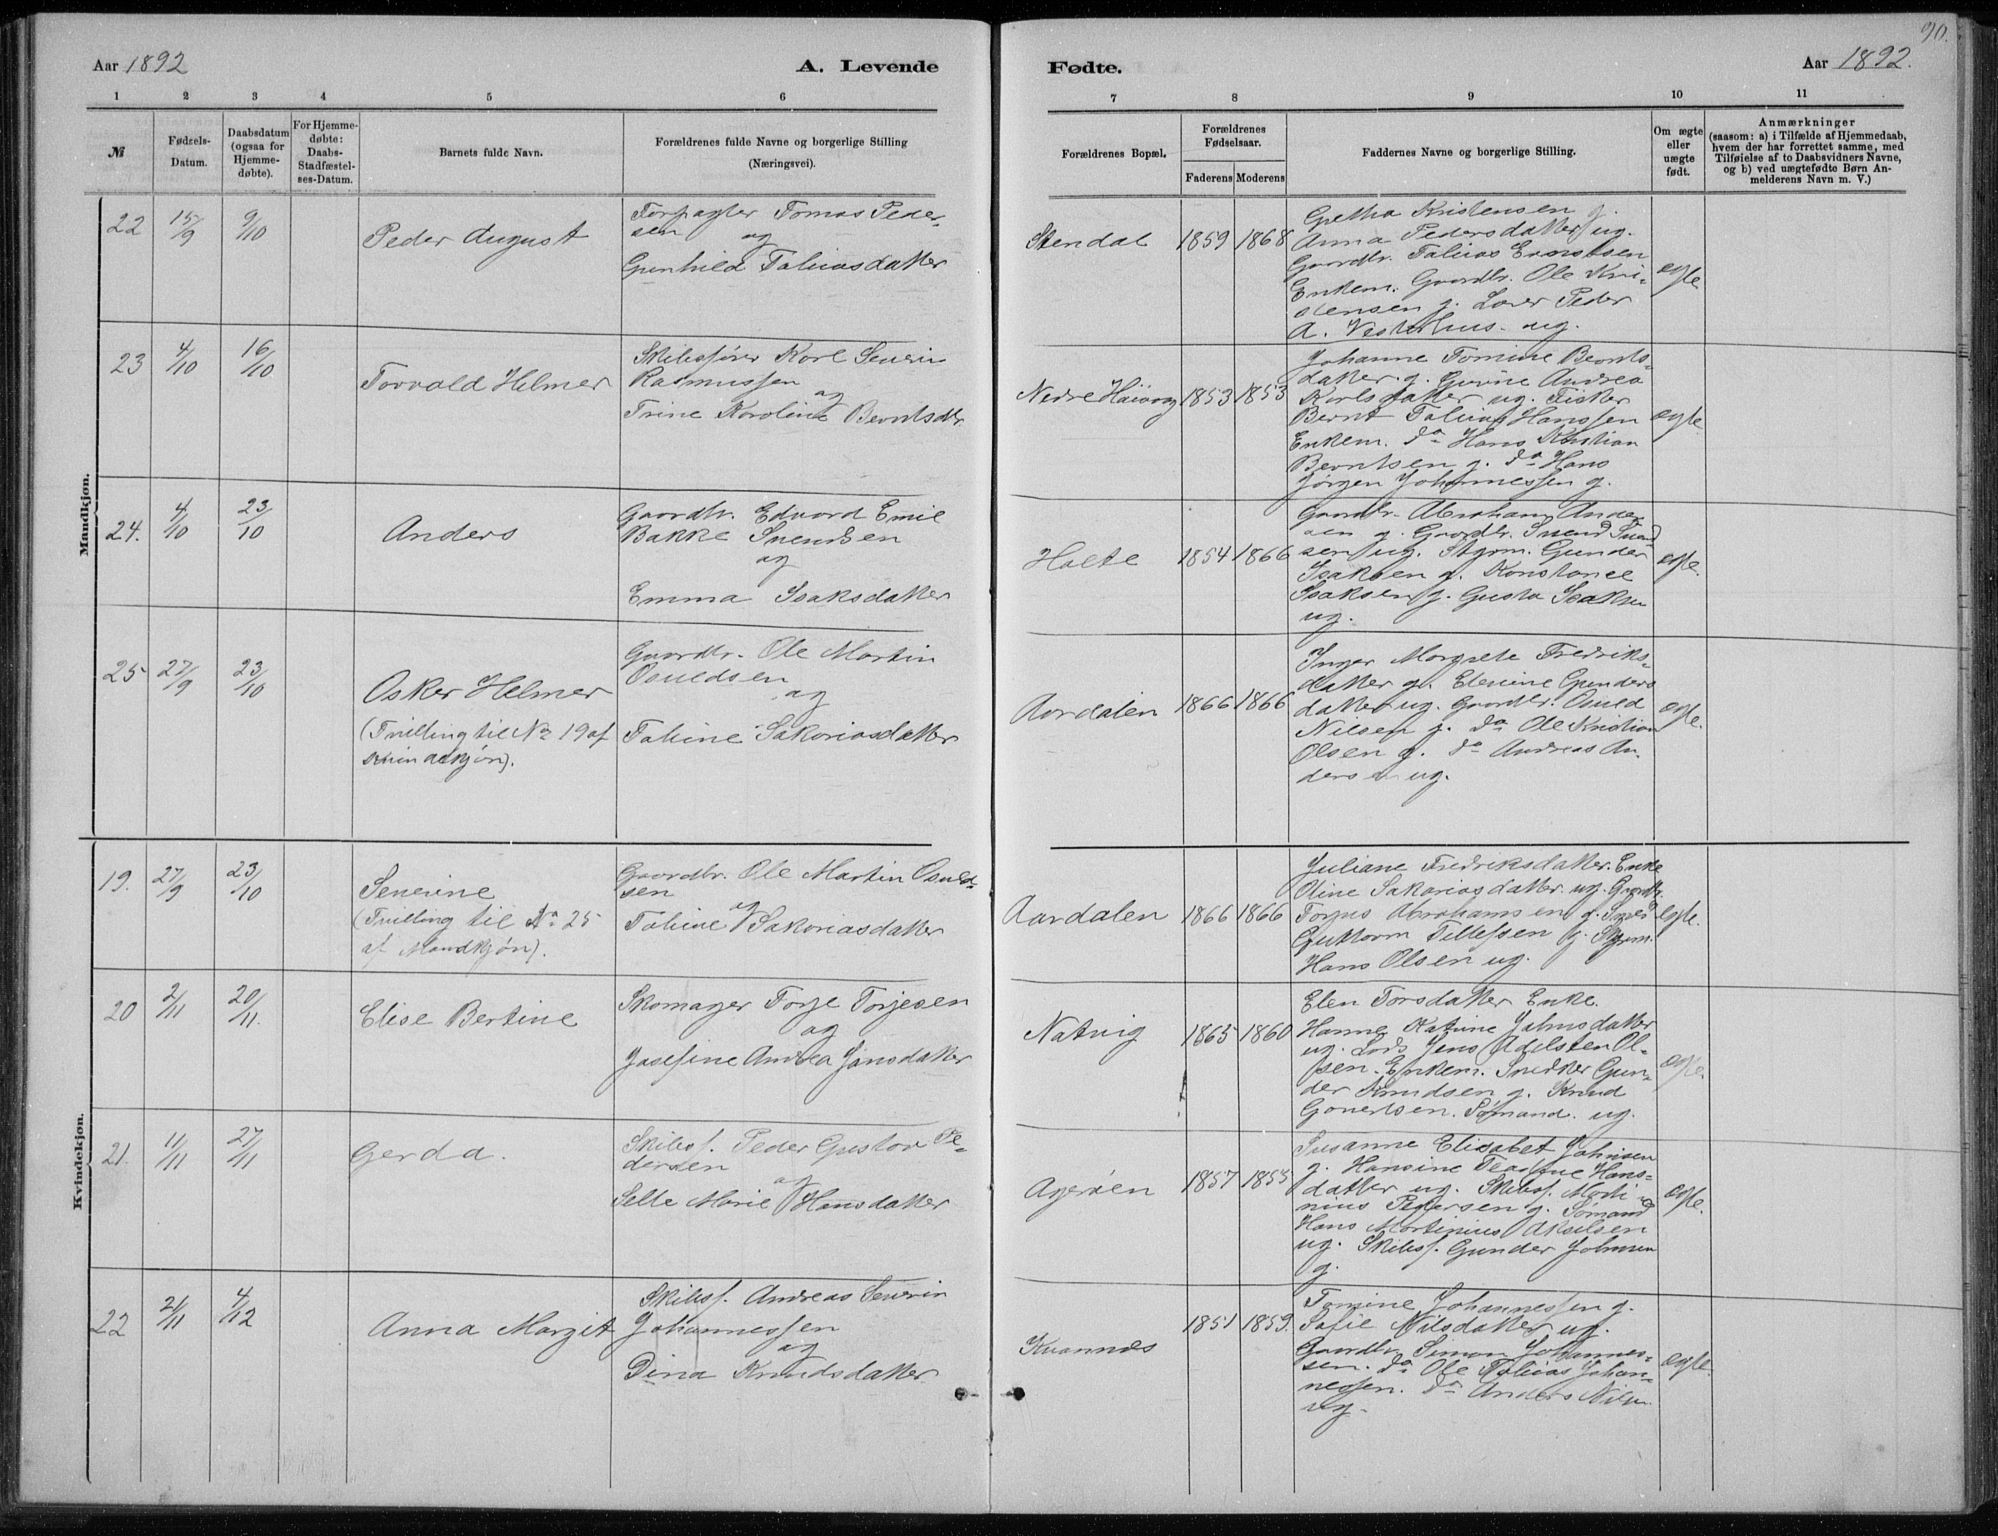 90.
Aar 1892
A. Levende
Fødte.
Aar 1892.
1 2 3 4 5 6
7 8 9 10 11
№
Fødsels-
Datum.
Daabsdatum
(ogsaa for
Hjemme-
døbte).
For Hjemme-
døbte:
Daabs-
Stadfæstel-
ses-Datum.
Barnets fulde Navn.
Forældrenes fulde Navne og borgerlige Stilling
(Næringsvei).
Forældrenes Bopæl.
Forældrenes
Fødselsaar.
Faderens Moderens
Faddernes Navne og borgerlige Stilling.
Om ægte
eller
uægte
født.
Anmærkninger
(saasom: a) i Tilfælde af Hjemmedaab,
hvem der har forrettet samme, med
Tilføielse af to Daabsvidners Navne,
og b) ved uægtefødte Børn An-
melderens Navn m. V.)
Mandkjøn.
22 15/9 9/10
Peder August
Forpagter Tomas Peder-
sen
og
Gunhild Tobiasdatter
Stendal 1859 1868
Gretha Kristensen g.
Anna Pedersdatter ug.
Gaardbr. Tobias Ernstsen
Enkem. Gaardbr. Ole Kri-
stensen g. Lærer Peder
A. Vesterhus. ug.
ægte
23 4/10 16/10
Torvald Helmer
Skibsfører Karl Severin
Rasmussen
og
Trine Karoline Berntsdtr
Nedre Häivaag 1853 1853
Johanne Tomine Bernts-
datter g. Gurine Andrea
Karlsdatter ug. Fisker
Bernt Tobias Hanssen
Enkem. do Hans Kristian
Berntsen g. do Hans
Jørgen Johannessen g.
ægte.
24. 4/10 23/10
Anders
Gaardbr. Edvard Emil
Bakke Svendsen
og
Emma Isaksdatter
Holte 1854 1866
Gaardbr. Abraham Ander
sen g. Gaardbr. Svend Svend
sen ug. Styrm. Gunder
Isaksen g. Konstance
Isaksen g. Gusta Isaksen
ug.
ægte.
25 27/9 23/10
Osker Helmer
(Tvilling til No 19 af
Kvindekjøn).
Gaardbr. Ole Martin
Osuldsen
og
Tobine Sakariasdatter
Aardalen 1866 1866
Inger Margrete Fredriks-
datter g. Elevine Gunders
datter ug. Gaardbr. Osuld
Nilsen g. do Ole Kristian
Olsen g. do Andreas An-
dersen ug.
ægte.
Kvindekjøn.
19. 27/9 23/10
Severine
(Tvilling til No 25
af Mandkjøn).
Gaardbr. Ole Martin Osuld-
sen
og
Tobine Sakariasdatter
Aardalen 1866 1866
Juliane Fredriksdatter. Enke
Oline Sakariasdatter ug. Gaardb.
Torjus Abrahamsen g. Smed
Guttorm Tellefsen g. Styrm.
Hans Olsen ug.
ægte.
20 2/11 20/11.
Elise Bertine
Skomager Torje Torjesen
og
Josefine Andrea Jensdatter
Natvig 1865 1860
Elen Torsdatter Enke.
Hanne Katrine Jakobsdatter
ug. Lods Jens Adelsten Ol-
sen. Enkem. Snedker Gun-
der Knudsen g. Knud
Govertsen. Sømand. ug.
ægte.
21. 11/11 27/11
Gerda.
Skibsf. Peder Gustav Pe-
dersen
og
Selle Marie Hansdatter
Agerøen 1857 1855
Susanne Elisabet Johnsen
g. Hansine Hans-
datter ug. Skibsf. Marti-
nius Pedersen g. Sømand
Hans Martinius Akselsen
ug. Skibsf. Gunder Johnsen
g.
ægte.
22 21/11 4/12
Anna Margit
Skibsf. Andreas Severin
Johannessen
og
Dina Knudsdatter
Kvannes 1851 1859.
Tomine Johannessen g.
Sofie Nilsdatter ug.
Gaardbr. Simon Johannes-
sen. do Ole Tobias Johan-
nessen. do Anders Nilsen
ug.
ægte.